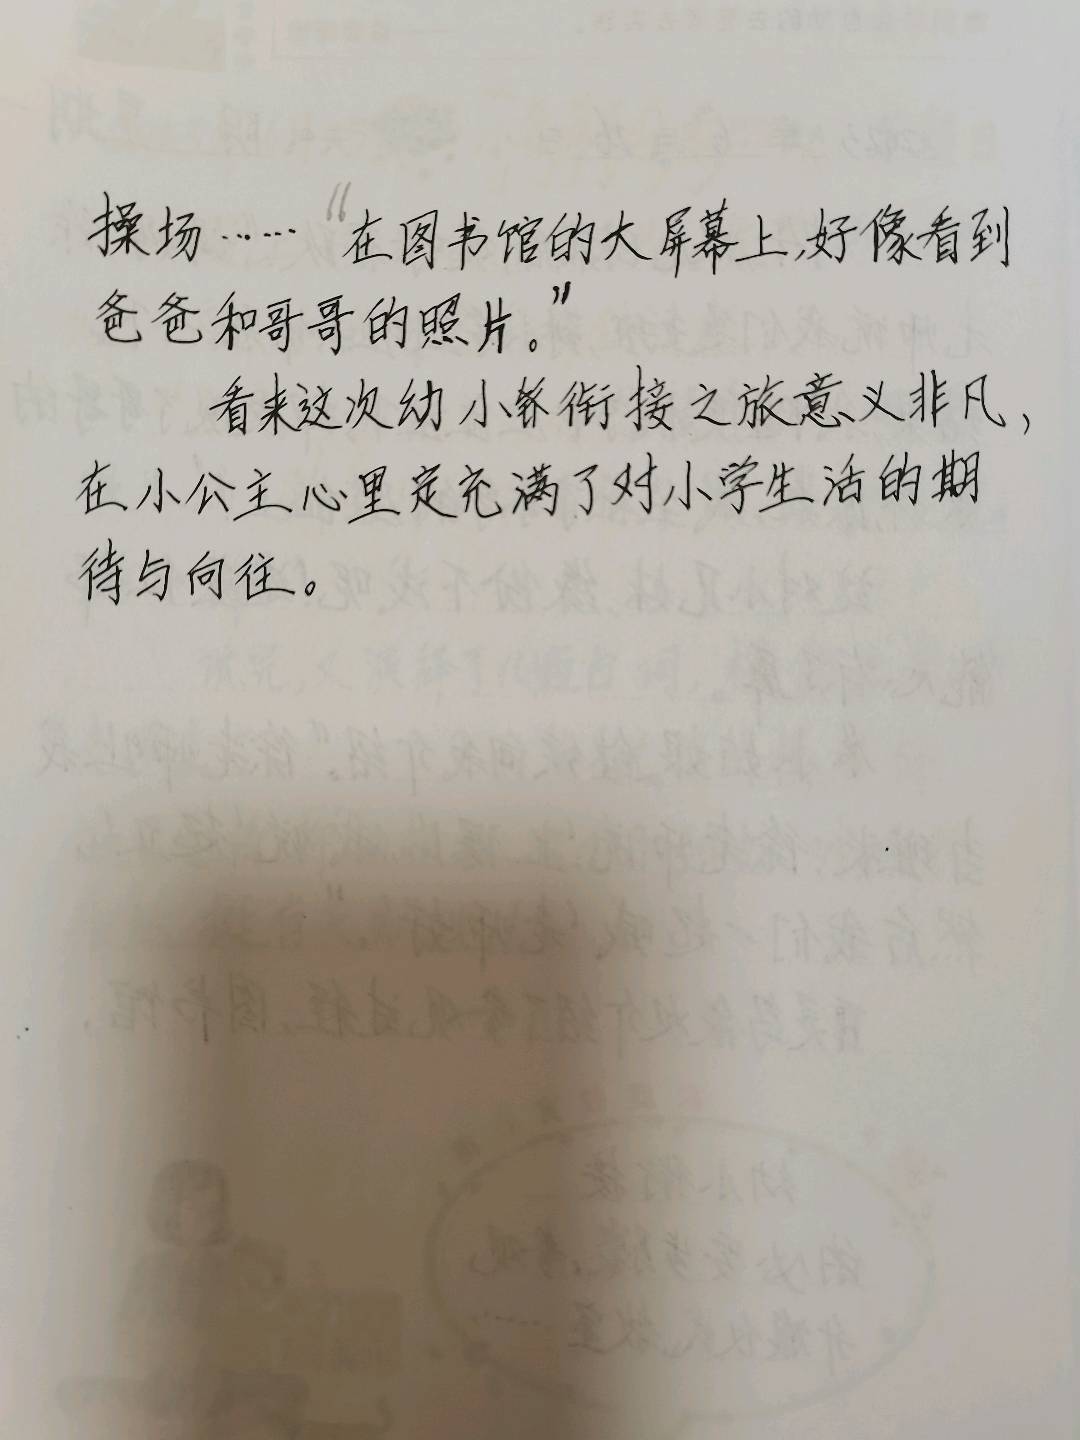 操场……“在图书馆的大屏幕上,好像看到
爸爸和哥哥的照片。”
看来这次幼小衔接之旅意义非凡,
在小公主心里定充满了对小学生活的期
待与向往。